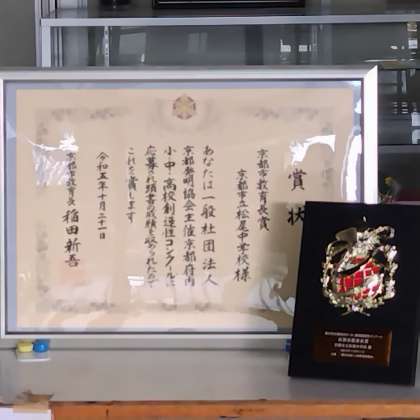 賞状
京都市教育長賞
京都市立松尾中学校様
あなたは一般社団法人
京都発明協会主催京都府内
小中高校創造性コンクールに
応募され頭書の成績を収められたので
これを賞します
令和五年十月二十一日
京都市教育長 稲田新吾